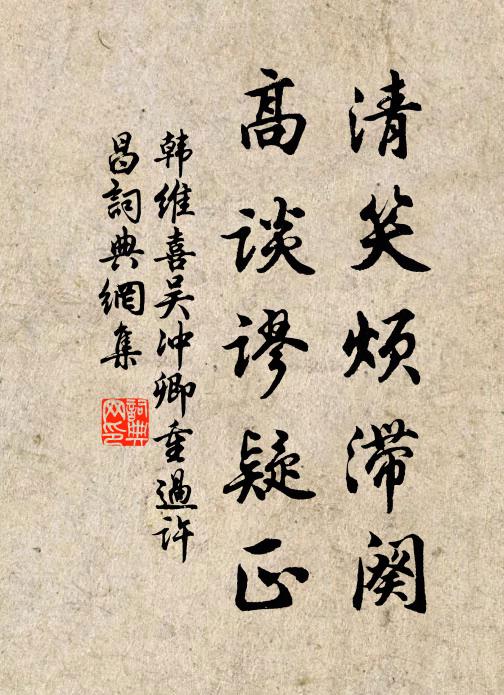 清笑烦滞阕
高谈谬疑正
韩维喜吴冲卿重過许
昌詞典網集
詞典
网印